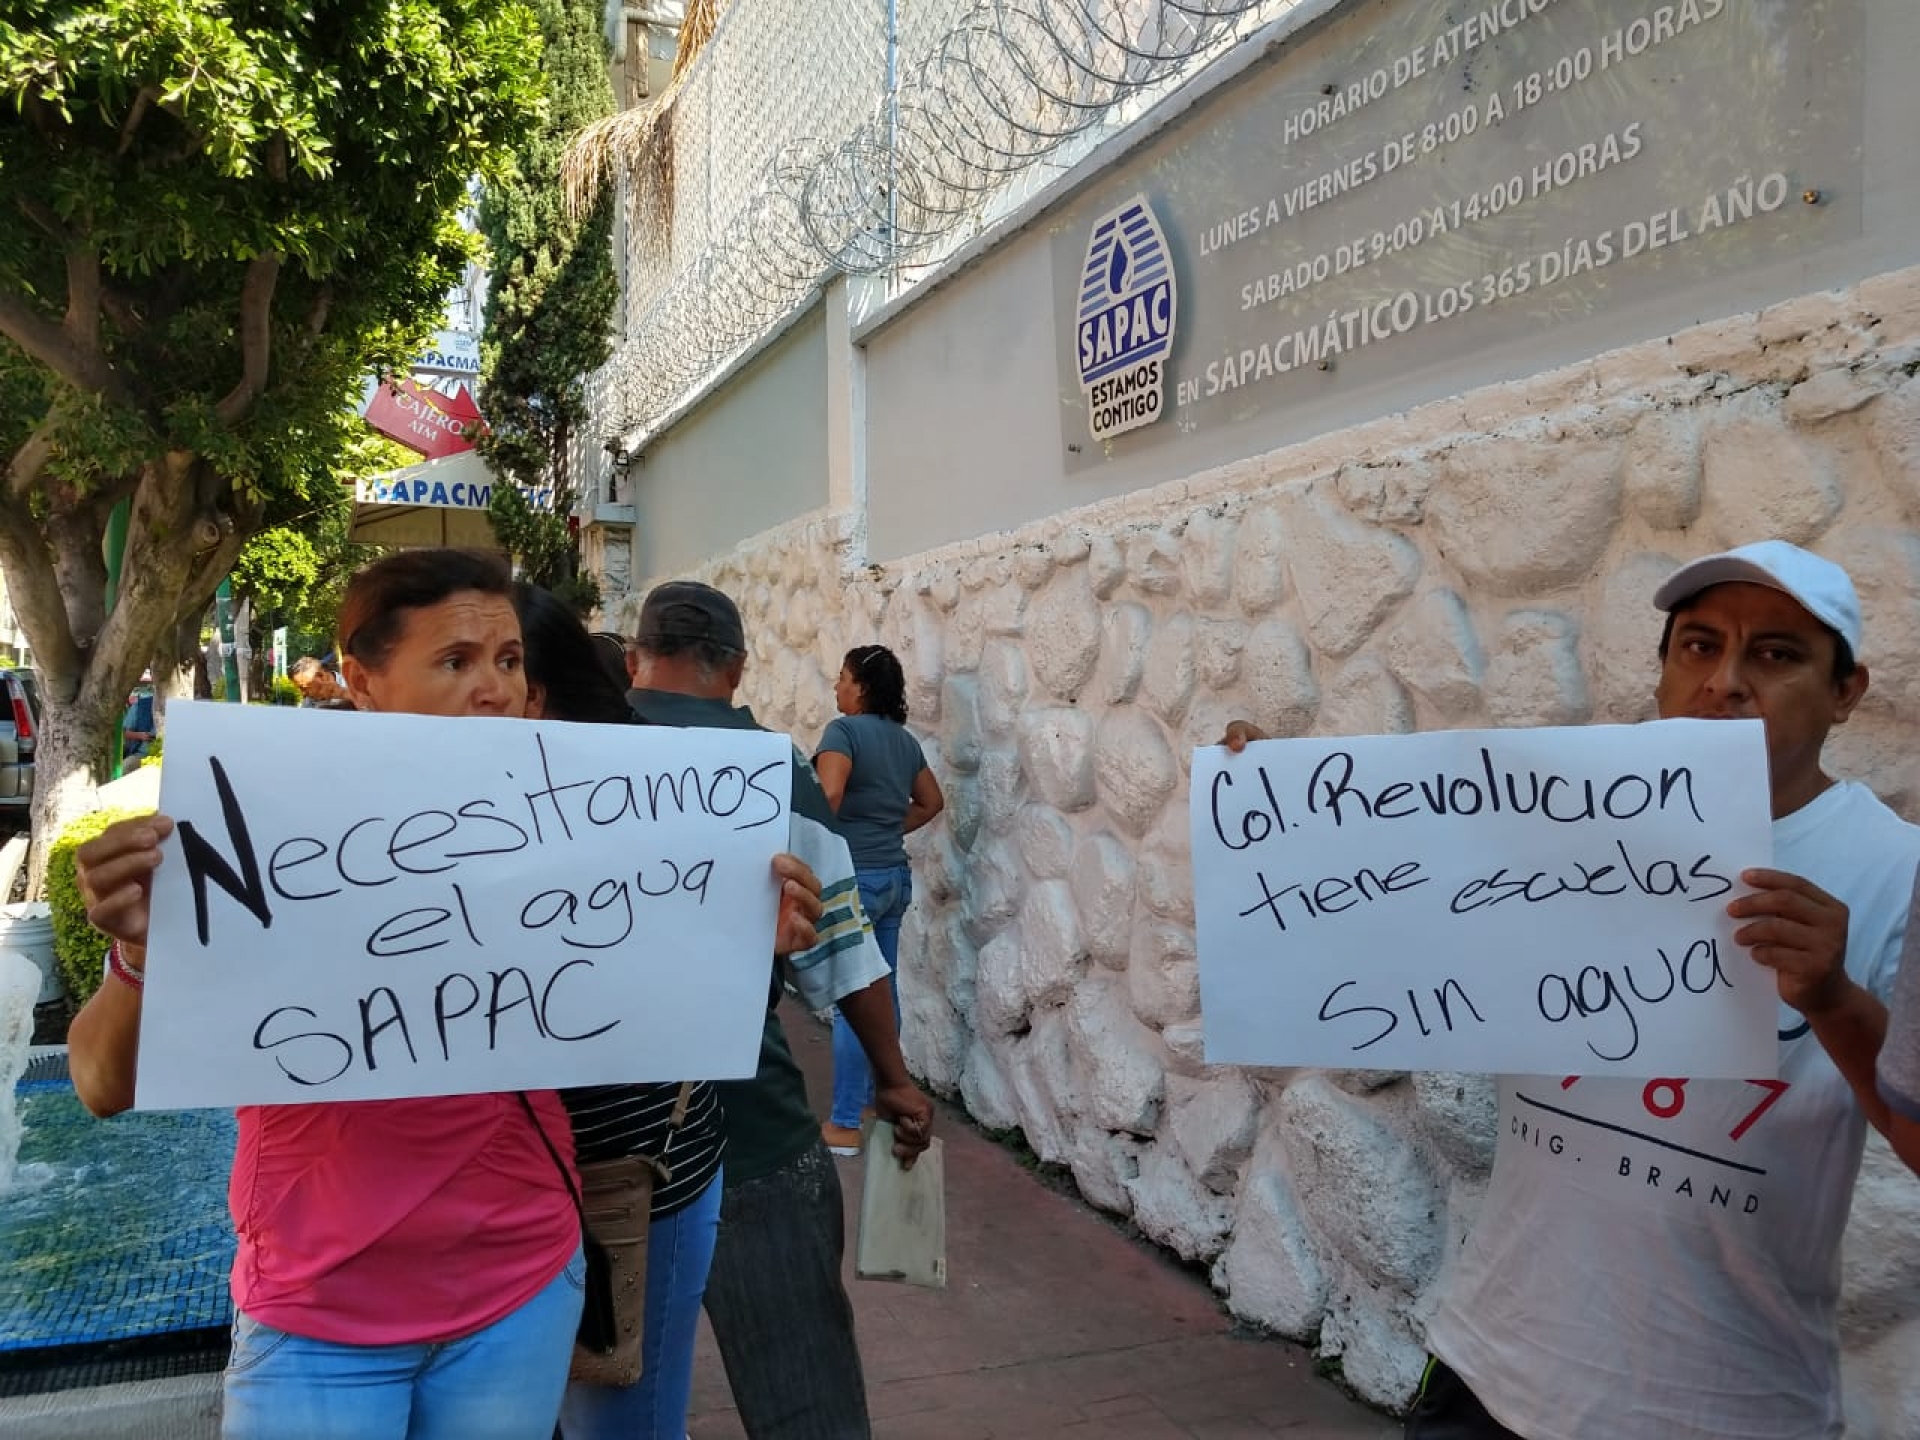 HORARIO DE ATENCIÓN
LUNES A VIERNES DE 8:00 A 18:00 HORAS
SABADO DE 9:00 A 14:00 HORAS
EN SAPACMÁTICO LOS 365 DÍAS DEL AÑO
SAPAC
ESTAMOS
CONTIGO
APACMA
CAJERO
ATM
SAPACM TIC
Necesitamos
el agua
SAPAC
Col. Revolucion
tiene escuelas
sin agua
787
ORIG. BRAND